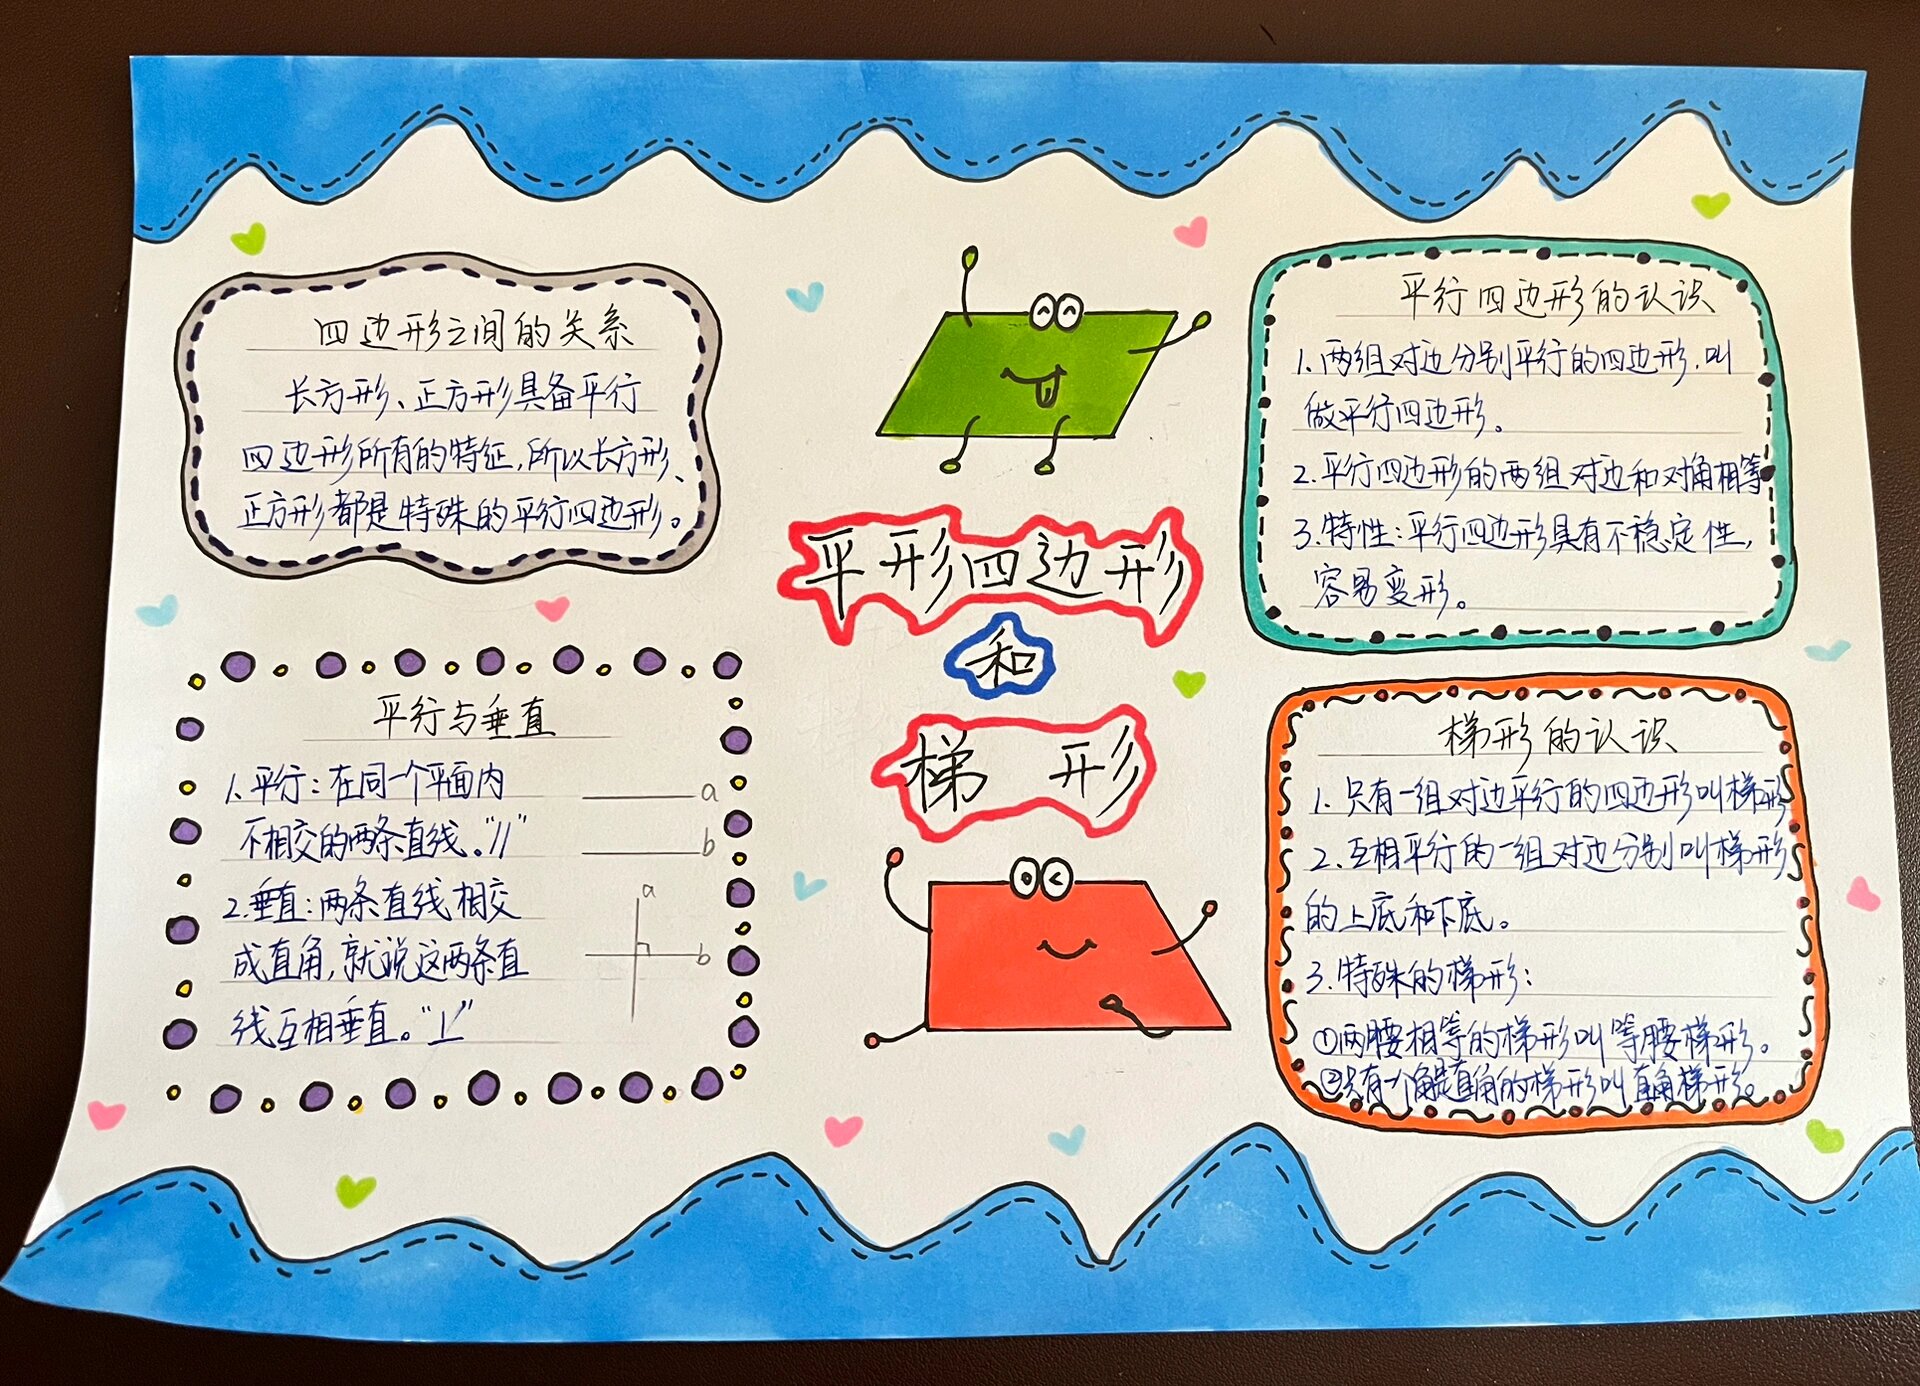 四边形之间的关系
长方形、正方形具备平行
四边形所有的特征,所以长方形、
正方形都是特殊的平行四边形。
平行与垂直
1.平行:在同一个平面内
不相交的两条直线。"//"
2.垂直:两条直线相交
成直角,就说这两条直
线互相垂直。"⊥"
a
b
a
b
平形四边形
和
梯 形
平行四边形的认识
1.两组对边分别平行的四边形.叫
做平行四边形。
2.平行四边形的两组对边和对角相等
3.特性:平行四边形具有不稳定性,
容易变形。
梯形的认识
1.只有一组对边平行的四边形叫梯形
2.互相平行的一组对边分别叫梯形
的上底和下底。
3.特殊的梯形:
①两腰相等的梯形叫等腰梯形。
②只有一个角是直角的梯形叫直角梯形。